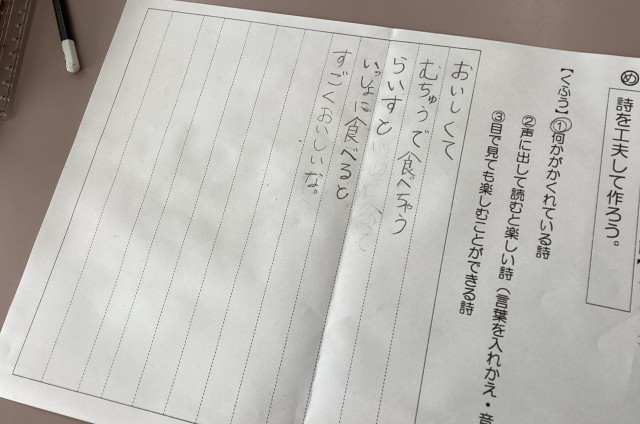 め
詩を工夫して作ろう。
【くふう】①何かがかくれている詩
②声に出して読むと楽しい詩(言葉を入れかえ・音
③目で見ても楽しむことができる詩
おいしくて
むちゅうで食べちゃう
らいすと
いっしょに食べると
すごくおいしいな。